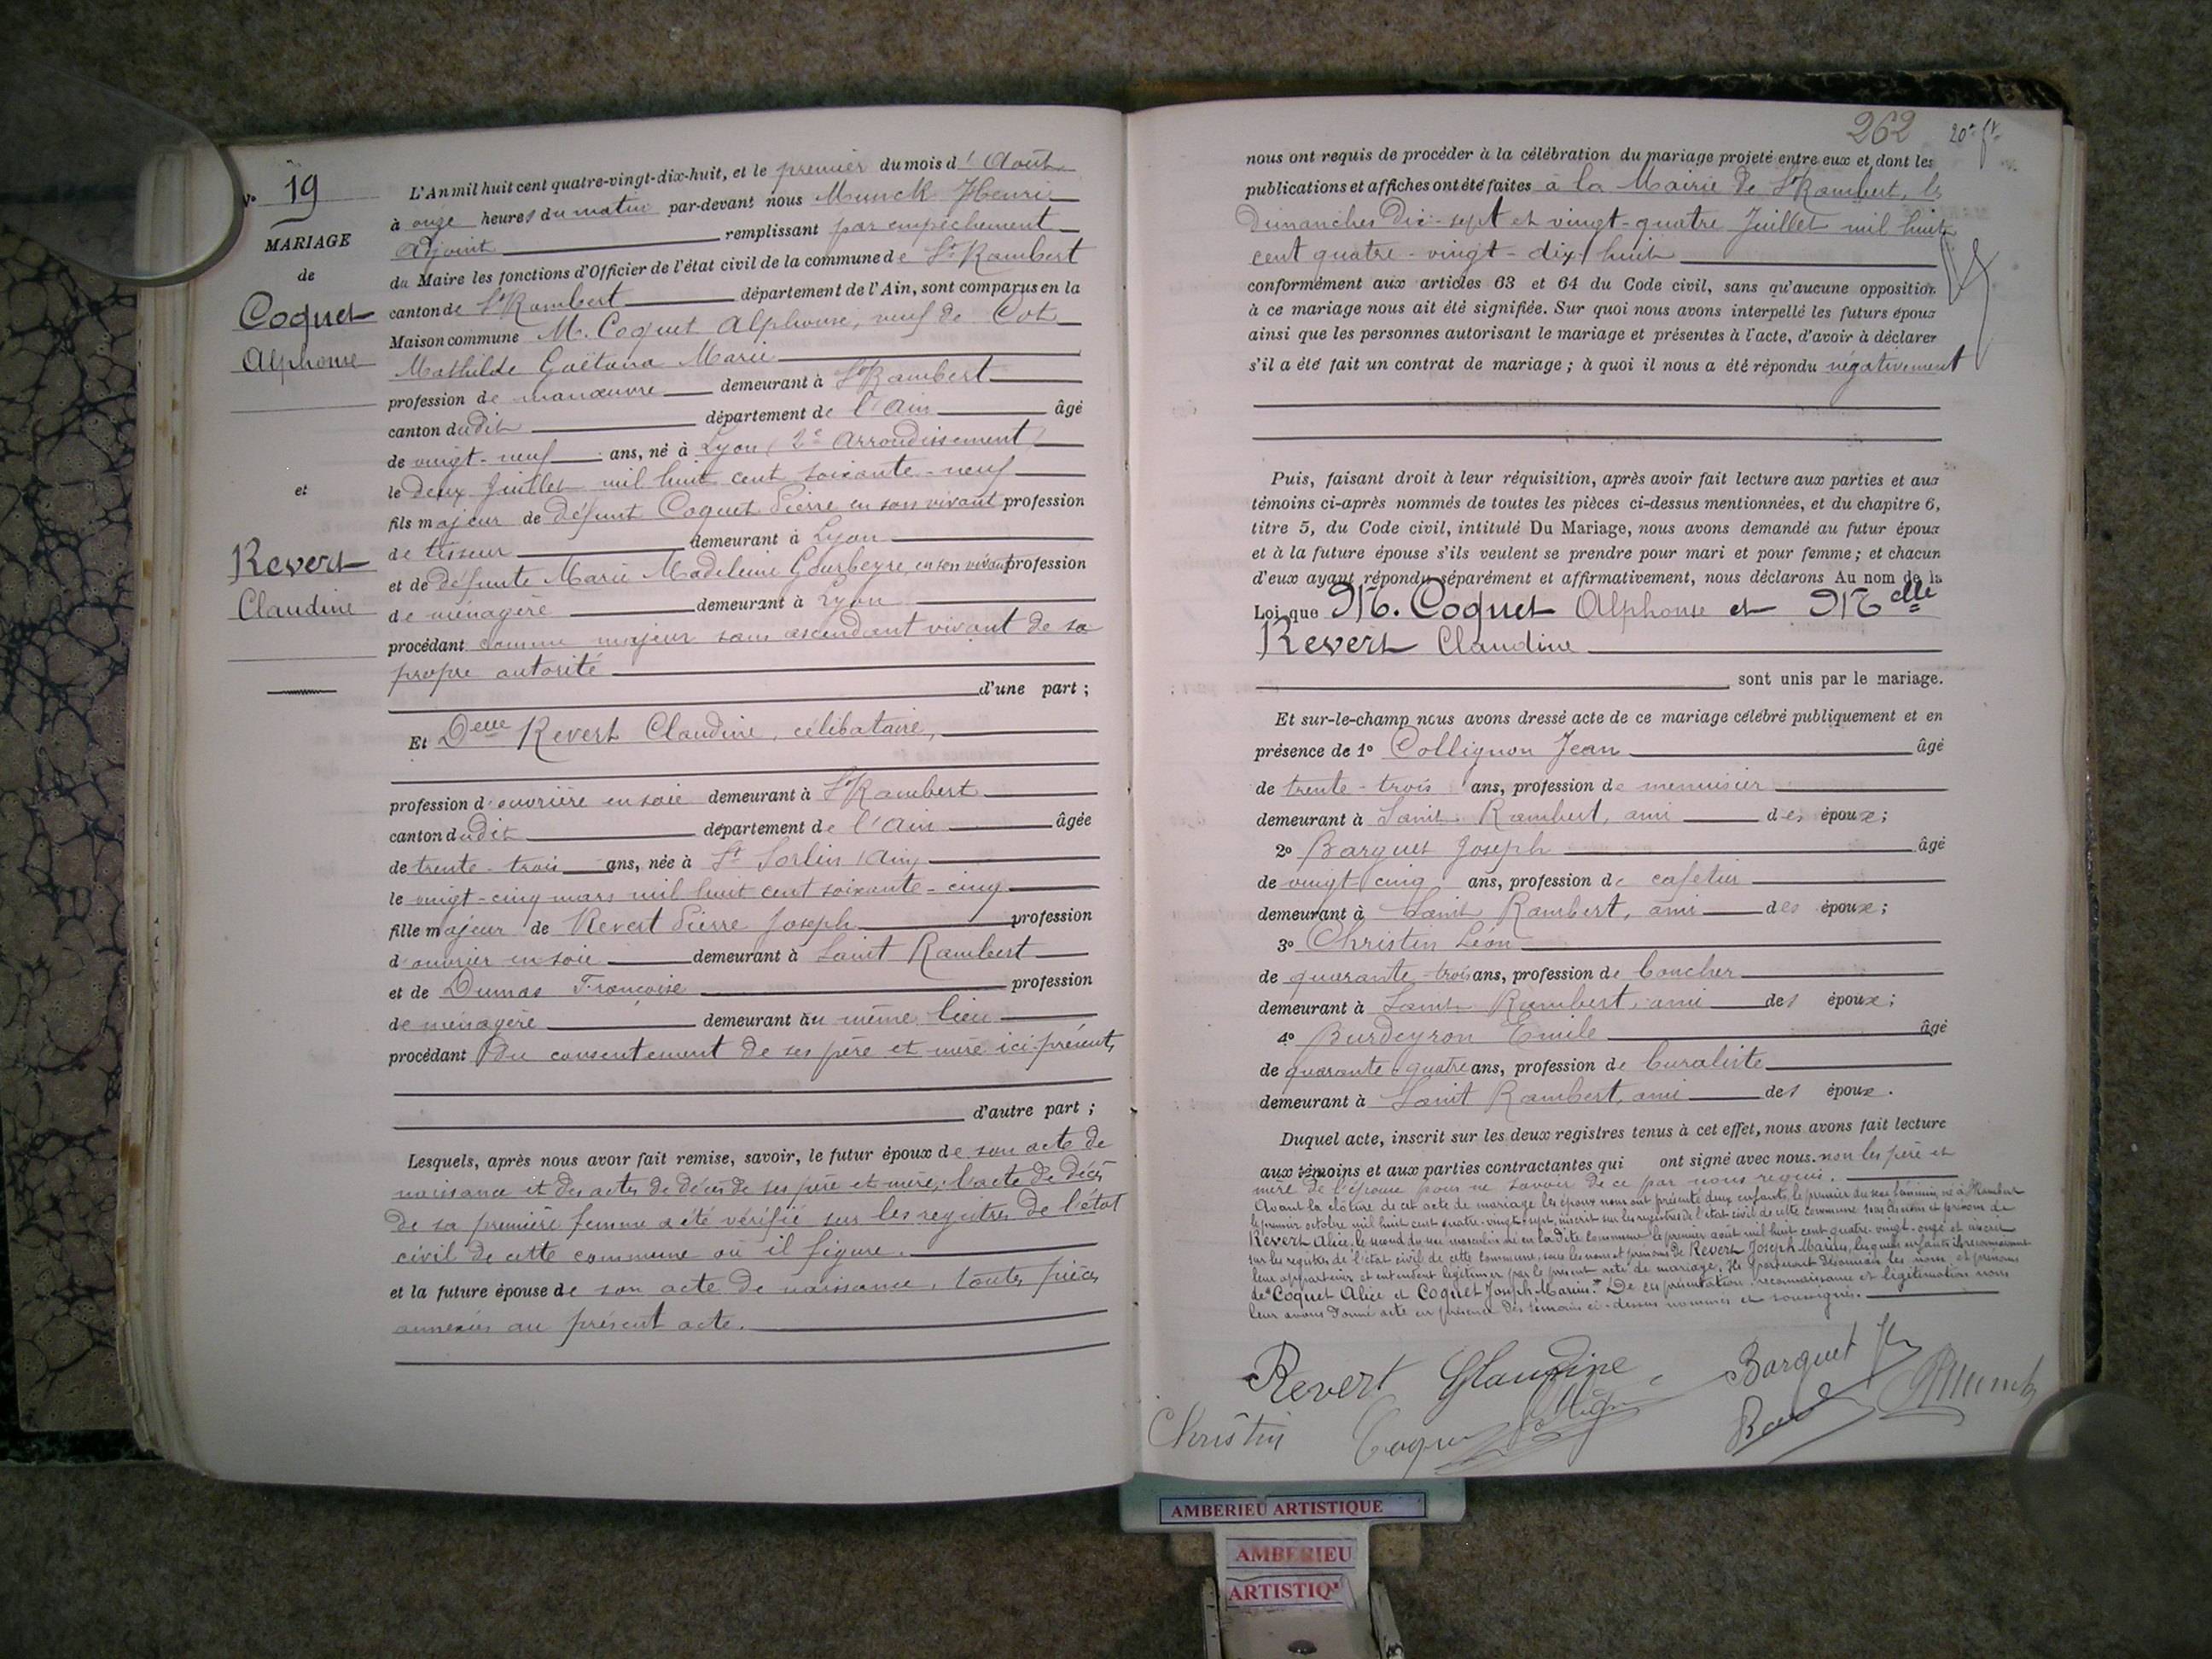 N° 19
MARIAGE
de
Coquet
Alphonse
et
Revert
Claudine
L'An mil huit cent quatre-vingt-dix-huit, et le premier du mois d'Août
à onze heures du matin par-devant nous Munck Henri
adjoint remplissant par empêchement
du Maire les fonctions d'Officier de l'état civil de la commune de St Rambert
canton de St Rambert département de l'Ain, sont comparus en la
Maison commune M. Coquet Alphonse, veuf de Cot
Mathilde Gaëtana Marie
profession de manœuvre demeurant à St Rambert
canton dudit département de l'Ain âgé
de vingt-neuf ans, né à Lyon (2e Arrondissement)
le deux Juillet mil huit cent soixante-neuf
fils majeur de défunt Coquet Pierre en son vivant profession
de tisseur demeurant à Lyon
et de défunte Marie Madeleine Gourbeyre, en son vivant profession
de ménagère demeurant à Lyon
procédant comme majeur sans ascendant vivant de sa
propre autorité
d'une part ;
Et Delle Revert Claudine, célibataire,
profession d'ouvrière en soie demeurant à St Rambert
canton dudit département de l'Ain âgée
de trente-trois ans, née à St Sorlin (Ain)
le vingt-cinq mars mil huit cent soixante-cinq
fille majeur de Revert Pierre Joseph profession
d'ouvrier en soie demeurant à Saint Rambert
et de Dumas Françoise profession
de ménagère demeurant au même lieu
procédant du consentement de ses père et mère ici présents
d'autre part ;
Lesquels, après nous avoir fait remise, savoir, le futur époux de son acte de
naissance et des actes de décès de ses père et mère, l'acte de décès
de sa première femme a été vérifié sur les registres de l'état
civil de cette commune où il figure.
et la future épouse de son acte de naissance, toutes pièces
annexées au présent acte.
262 20e ft
nous ont requis de procéder à la célébration du mariage projeté entre eux et dont les
publications et affiches ont été faites à la Mairie de St Rambert, les
Dimanches Dix-sept et vingt-quatre Juillet mil huit
cent quatre-vingt-dix-huit
conformément aux articles 63 et 64 du Code civil, sans qu'aucune opposition
à ce mariage nous ait été signifiée. Sur quoi nous avons interpellé les futurs époux
ainsi que les personnes autorisant le mariage et présentes à l'acte, d'avoir à déclarer
s'il a été fait un contrat de mariage ; à quoi il nous a été répondu négativement
Puis, faisant droit à leur réquisition, après avoir fait lecture aux parties et aux
témoins ci-après nommés de toutes les pièces ci-dessus mentionnées, et du chapitre 6,
titre 5, du Code civil, intitulé Du Mariage, nous avons demandé au futur époux
et à la future épouse s'ils veulent se prendre pour mari et pour femme ; et chacun
d'eux ayant répondu séparément et affirmativement, nous déclarons Au nom de la
Loi que M. Coquet Alphonse et Melle
Revert Claudine
sont unis par le mariage.
Et sur-le-champ nous avons dressé acte de ce mariage célébré publiquement et en
présence de 1° Collignon Jean âgé
de trente-trois ans, profession de menuisier
demeurant à Saint Rambert, ami des époux ;
2° Barquet Joseph âgé
de vingt-cinq ans, profession de cafetier
demeurant à Saint Rambert, ami des époux ;
3° Christin Léon
de quarante-trois ans, profession de boucher
demeurant à Saint Rambert, ami des époux ;
4° Burdeyron Emile âgé
de quarante-quatre ans, profession de buraliste
demeurant à Saint Rambert, ami des époux.
Duquel acte, inscrit sur les deux registres tenus à cet effet, nous avons fait lecture
aux témoins et aux parties contractantes qui ont signé avec nous. non les père et
mère de l'épouse pour ne savoir de ce par nous requis.
Avant la clôture de cet acte de mariage les époux nous ont présenté deux enfants, le premier du sexe féminin, né à St Rambert
le premier octobre mil huit cent quatre-vingt-sept, inscrit sur les registres de l'état civil de cette commune sous les nom et prénom de
Revert Alice, le second du sexe masculin né en la dite commune le premier août mil huit cent quatre-vingt-onze et inscrit
sur les registres de l'état civil de cette commune, sous les nom et prénoms de Revert Joseph Marius, lesquels enfants ils reconnaissent
leur appartenir et entendent légitimer par le présent acte de mariage. Ils porteront désormais les noms et prénoms
de "Coquet Alice et Coquet Joseph Marius." De ces présentation, reconnaissance et légitimation nous
leur avons donné acte en présence des témoins ci-dessus nommés et soussignés.
Revert Claudine Barquet Jh
Christin Coquet Munck
AMBERIEU ARTISTIQUE
AMBERIEU
ARTISTIQ